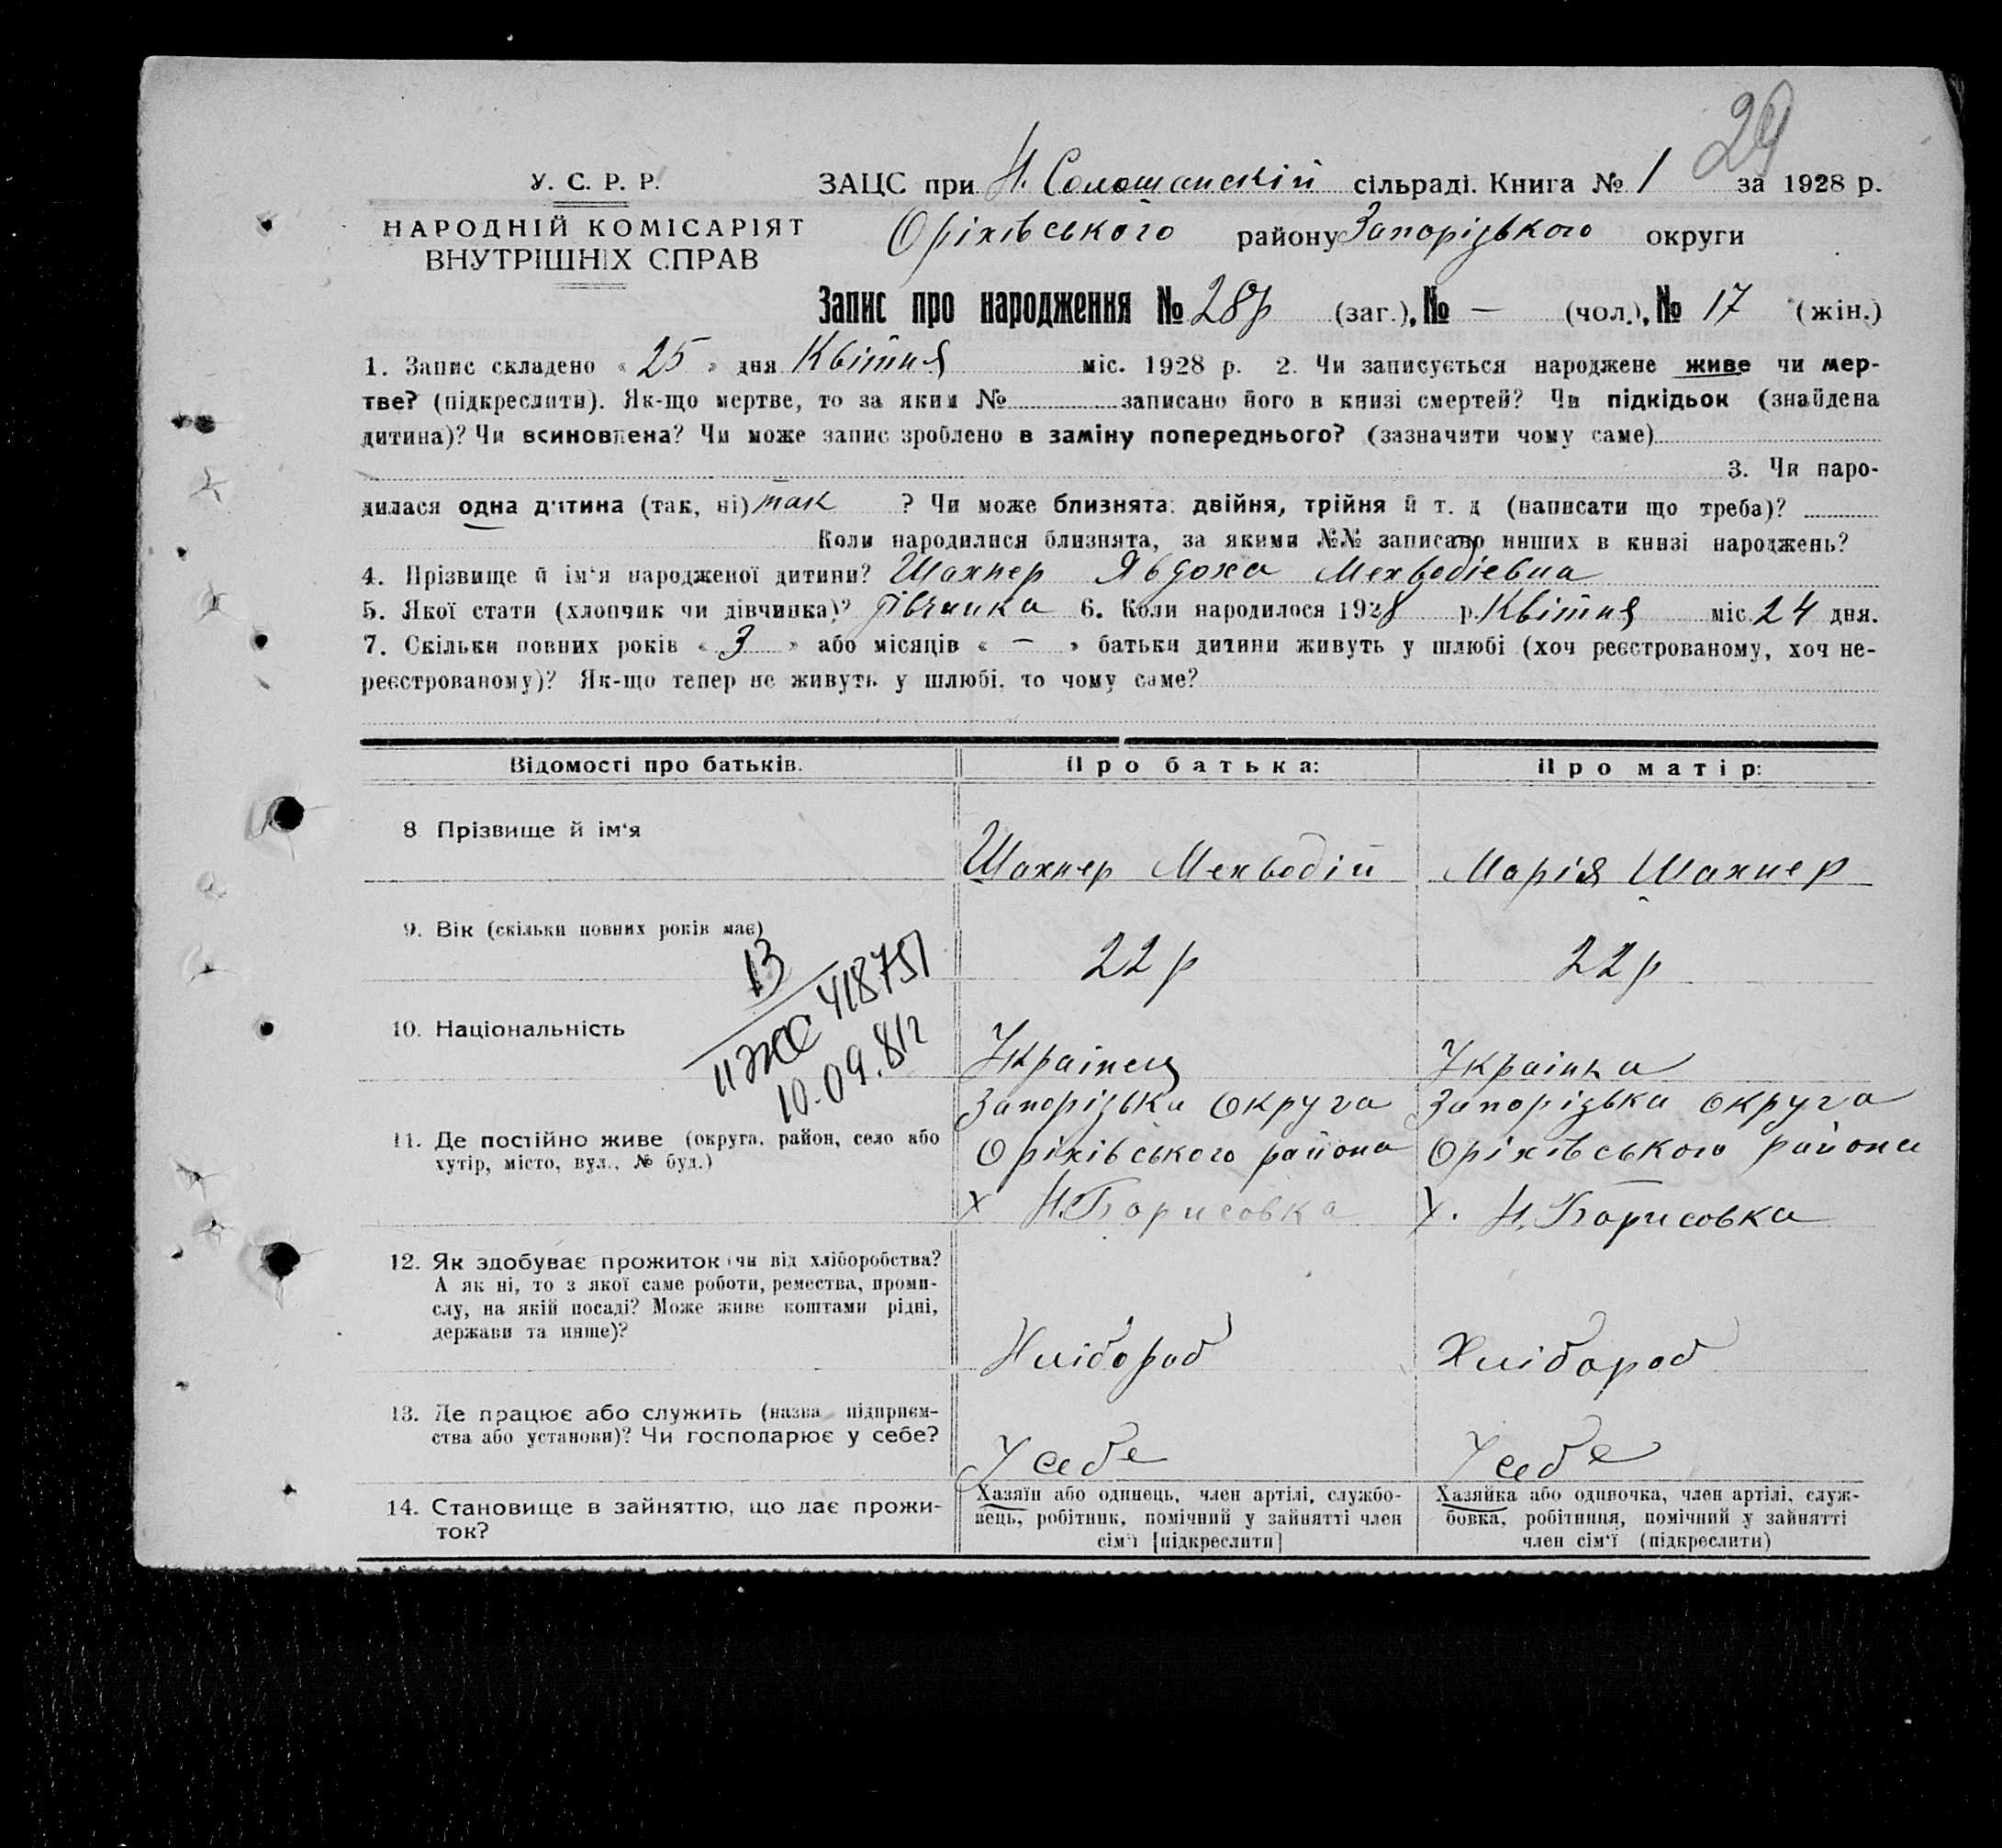 29
У. С. Р. Р.
НАРОДНІЙ КОМІСАРІЯТ
ВНУТРІШНІХ СПРАВ
ЗАЦС при Н. Солошанскій сільраді. Книга № 1 за 1928 р.
Оріхівського району Запорізького округи
Запис про народження № 28 (заг.), № — (чол.), № 17 (жін.)
1. Запис складено « 25 » дня Квітня міс. 1928 р. 2. Чи записується народжене живе чи мер-
тве? (підкреслити). Як-що мертве, то за яким № записано його в книзі смертей? Чи підкідьок (знайдена
дитина)? Чи всиновлена? Чи може запис зроблено в заміну попереднього? (зазначити чому саме)
3. Чи наро-
дилася одна дитина (так, ні) так ? Чи може близнята: двійня, трійня й т. д (написати що треба)?
Коли народилися близнята, за якими №№ записано инших в книзі народжень?
4. Прізвище й ім'я народженої дитини? Шахнер Явдоха Мехводієвна
5. Якої стати (хлопчик чи дівчинка)? дівчинка 6. Коли народилося 1928 р. Квітня міс. 24 дня.
7. Скільки повних років « 3 » або місяців « — » батьки дитини живуть у шлюбі (хоч реєстрованому, хоч не-
реєстрованому)? Як-що тепер не живуть у шлюбі, то чому саме?
Відомості про батьків. Про батька: Про матір:
8 Прізвище й ім'я Шахнер Мехводій Марія Шахнер
9. Вік (скільки повних років має) 22 р 22 р
13
418751
10.09.81
10. Національність Українець Українка
11. Де постійно живе (округа, район, село або
хутір, місто, вул., № буд.)
Запорізька округа Запорізька округа
Оріхівського района Оріхівського района
х Н. Борисовка х. Н. Борисовка
12. Як здобуває прожиток (чи від хліборобства?
А як ні, то з якої саме роботи, ремества, проми-
слу, на якій посаді? Може живе коштами рідні,
держави та инше)?
Хлібороб Хлібороб
13. Де працює або служить (назва підприєм-
ства або установи)? Чи господарює у себе?
У себе У себе
14. Становище в зайняттю, що дає прожи-
ток?
Хазяїн або одинець, член артілі, службо-
вець, робітник, помічний у зайнятті член
сім'ї [підкреслити]
Хазяйка або одиночка, член артілі, служ-
бовка, робітниця, помічний у зайнятті
член сім'ї (підкреслити)